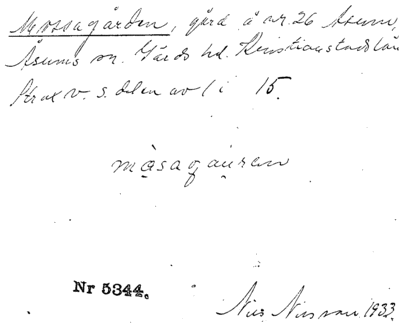 Mossagården, gård å nr. 26 Åsum,
Åsums sn. Gärds hd. Kristianstads län
Strax v. s. delen av l i 15.
måsagauren
Nr 5344.
Nils Nilsson 1933.